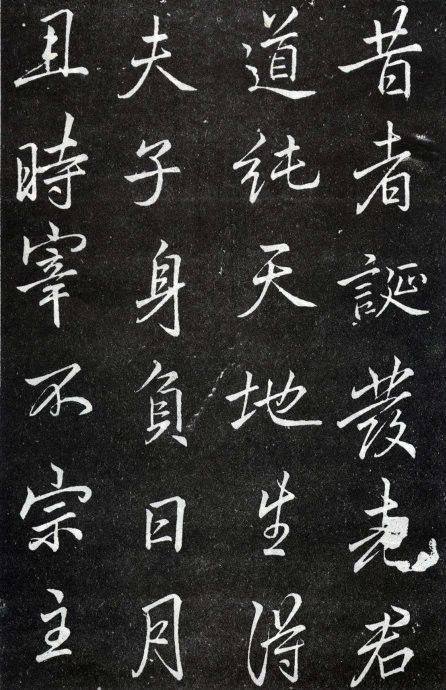 昔者誕發堯君
道純天地生得
夫子身負日月
且時宰不宗主